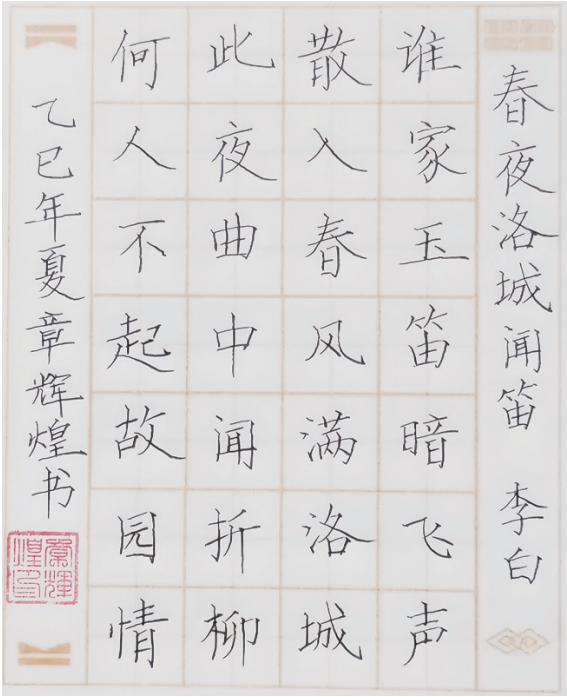 春夜洛城闻笛 李白
谁家玉笛暗飞声
散入春风满洛城
此夜曲中闻折柳
何人不起故园情
乙巳年夏章辉煌书
章輝煌印